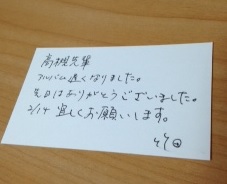 高槻先輩
アルバム遅くなりました。
先日はありがとうございました。
2/14 宜しくお願いします。